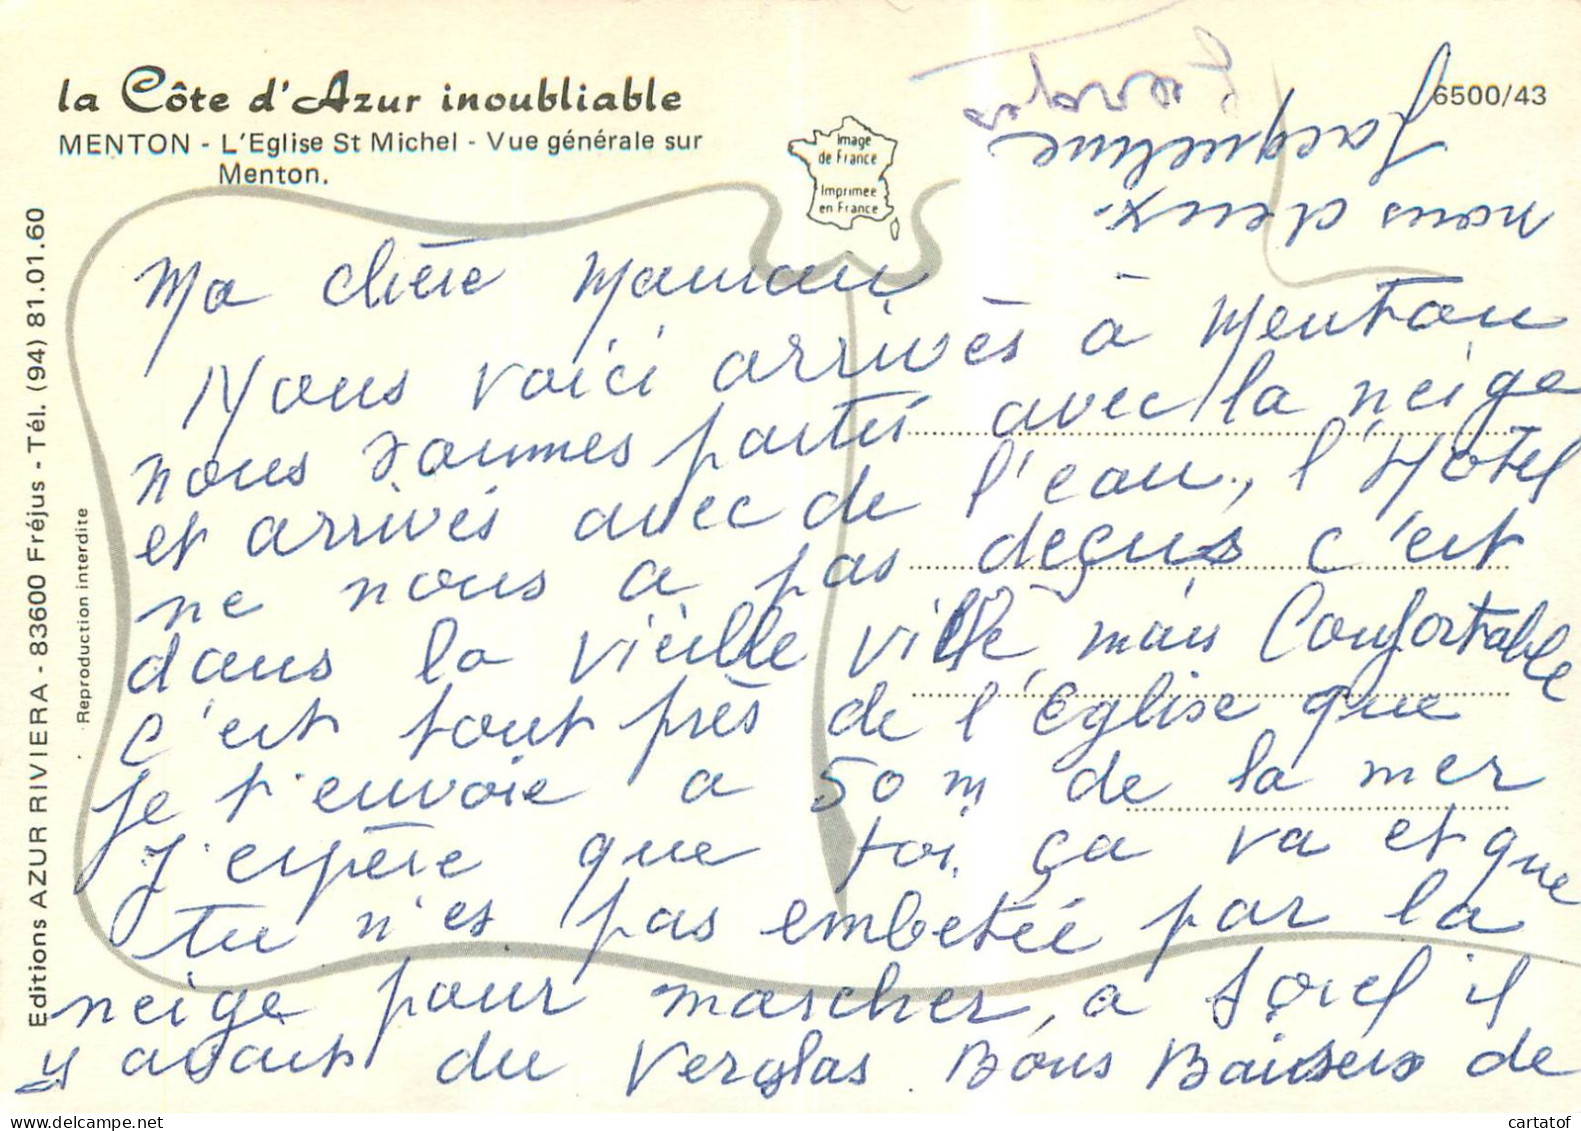 la Côte d'Azur inoubliable
MENTON - L'Eglise St Michel - Vue générale sur
Menton.
6500/43
Image
de France
Imprimée
en France
Editions AZUR RIVIERA - 83600 Fréjus - Tél. (94) 81.01.60
Reproduction interdite
Ma chère Maman
Nous voici arrivès à Menton
nous sommes partis avec la neige
et arrivés avec de l'eau, l'Hotel
ne nous a pas deçus c'est
dans la vieille ville, mais Confortable
c'est tout près de l'Eglise que
je t'envoie a 50 m de la mer
J'espère que toi ça va et que
tu n'es pas embetée par la
neige pour marcher, a Sorel il
y avait du Verglas. Bons Baisers de
nous deux.
Jacqueline